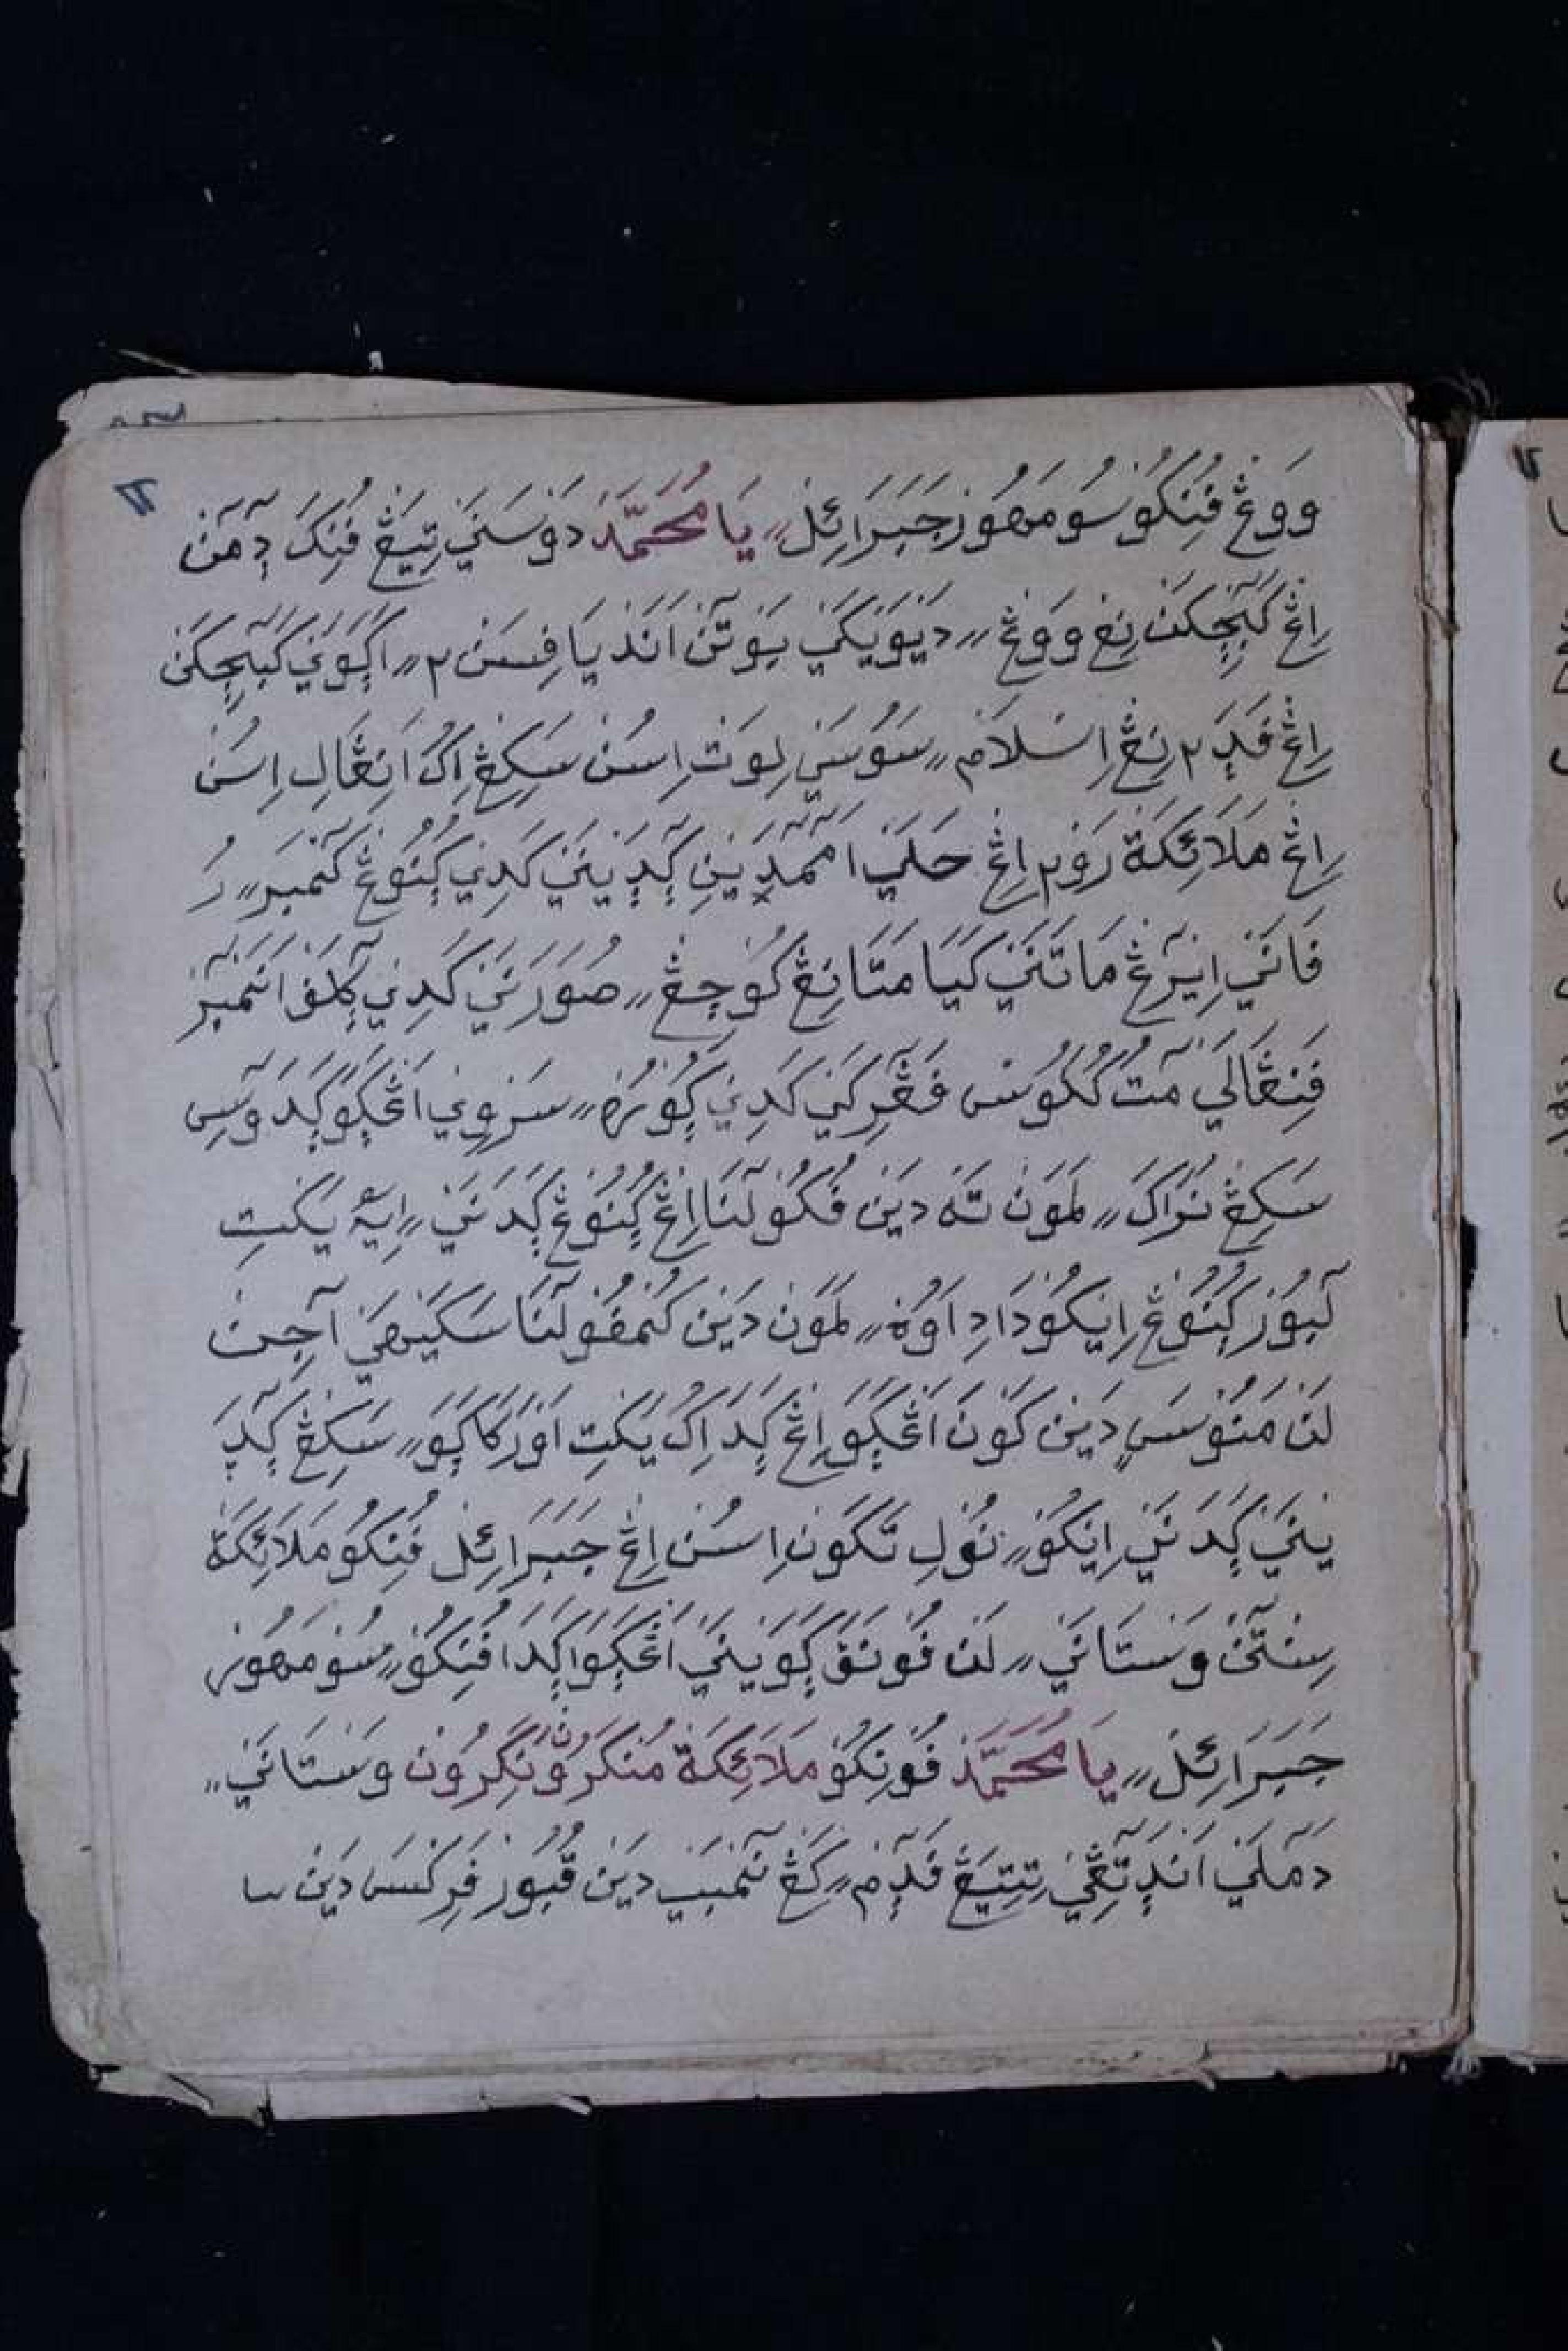 ووڠ فُنِكُو سُومَهُوْرْ جَبَرَائِلْ ؍؍ يَا مُحَمَّدْ دَوْسَنَيْ تِيَڠْ فُنِكَ دٓمَنْ
اِڠْ كَبٓجِكَنْ نِڠْ وَوڠْ ؍؍ دَيْوَيْكَيْ بَوْتٓنْ اَنْدْيَا فِسَنْ ٢ ؍؍ اَڮَوَيْ كَبٓجِكَنْ
اِڠْ فَدَ ٢ نِڠْ اِسْلَامْ ؍؍ سَوُسَيْ لِوَتْ اِسُنْ سَكِڠْ اِكُ اَنِڠَالِ اِسُنْ
اِڠْ مَلَائِكَةْ رَوْ ٢ اِڠْ حَلَيْ ڮٓدَيْ يَنَيْ كَدِيْ ڮُنُوڠْ كٓمْبَرْ ؍؍ رُ
فَانَيْ اِيْرٓڠْ مَاتَنَيْ كَيَا مَتَّا نِڠْ كُوجِڠْ ؍؍ صُوَرَنَيْ كَدِيْ ڮٓلَفْ اَنَمْبٓرْ
فَنِڠَالَيْ فَڠٓرِكَيْ كَدِيْ ؍؍ سَرْوِيْ اَڠْڮَوَا ڮَدَ وٓسِ
سَكِڠْ نَرَاكَ ؍؍ لَمَوْنْ تَهْ دَيْنْ فُكُوْلٓنَا اِڠْ ڮُنُوڠْ ڮَدَنَيْ ؍؍ اِيَهْ يَكْتِ
لٓبُوْرْ ڮُنُوڠْ اِيْكُوْ دَادِ اَوُهْ ؍؍ لَمَوْنْ دَيْنْ كُمْفُوْلٓنَا سَكَيْهَيْ اٰجِنْ
لَنْ مَنُوْسَ دَيْنْ كَوْنْ اَڠْڮَوَا اِڠْ ڮَدَ اِكُ يَكْتِ اَوْرَ كَاڮَوَ ؍؍ سَكِڠْ ڮٓدَيْ
يَنَيْ ڮَدَنَيْ اِيْكُوْ ؍؍ نُوْلِ تَكَوْنْ اِسُنْ اِڠْ جَبَرَائِلْ فُنِكُوْ مَلَائِكَةْ
سِنْتٓنْ وَسْتَانَيْ ؍؍ لَنْ فُوْنَفَ ڮَوَيْنَيْ اَڠْڮَوَا ڮَدَا فُنِكُوْ ؍؍ سُوْمَهُوْرْ
جَبَرَائِلْ ؍؍ يَا مُحَمَّدْ فُوْنِكُوْ مَلَائِكَةْ مُنْكَرُوْنْ وَنَكِرُوْنْ وَسْتَانَيْ ؍؍
دَمٓلَيْ اَنْدَتٓڠِيْ تِتِيَڠْ فَدٓمْ ؍؍ كَڠْ نٓمْبَيْ دَيْنْ قُبُوْرْ فَرِكْسَ دَيْنْ سا